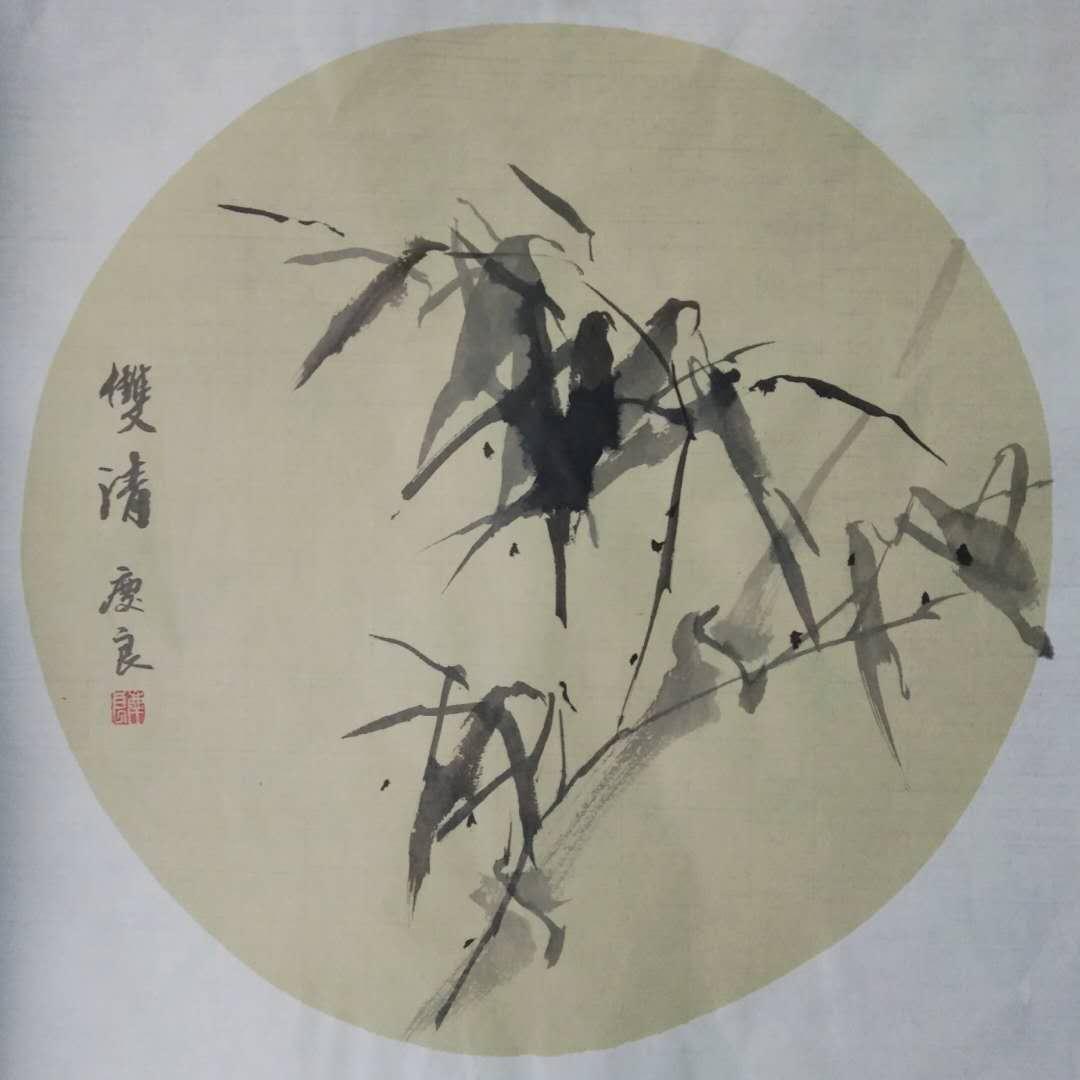 雙清 慶良